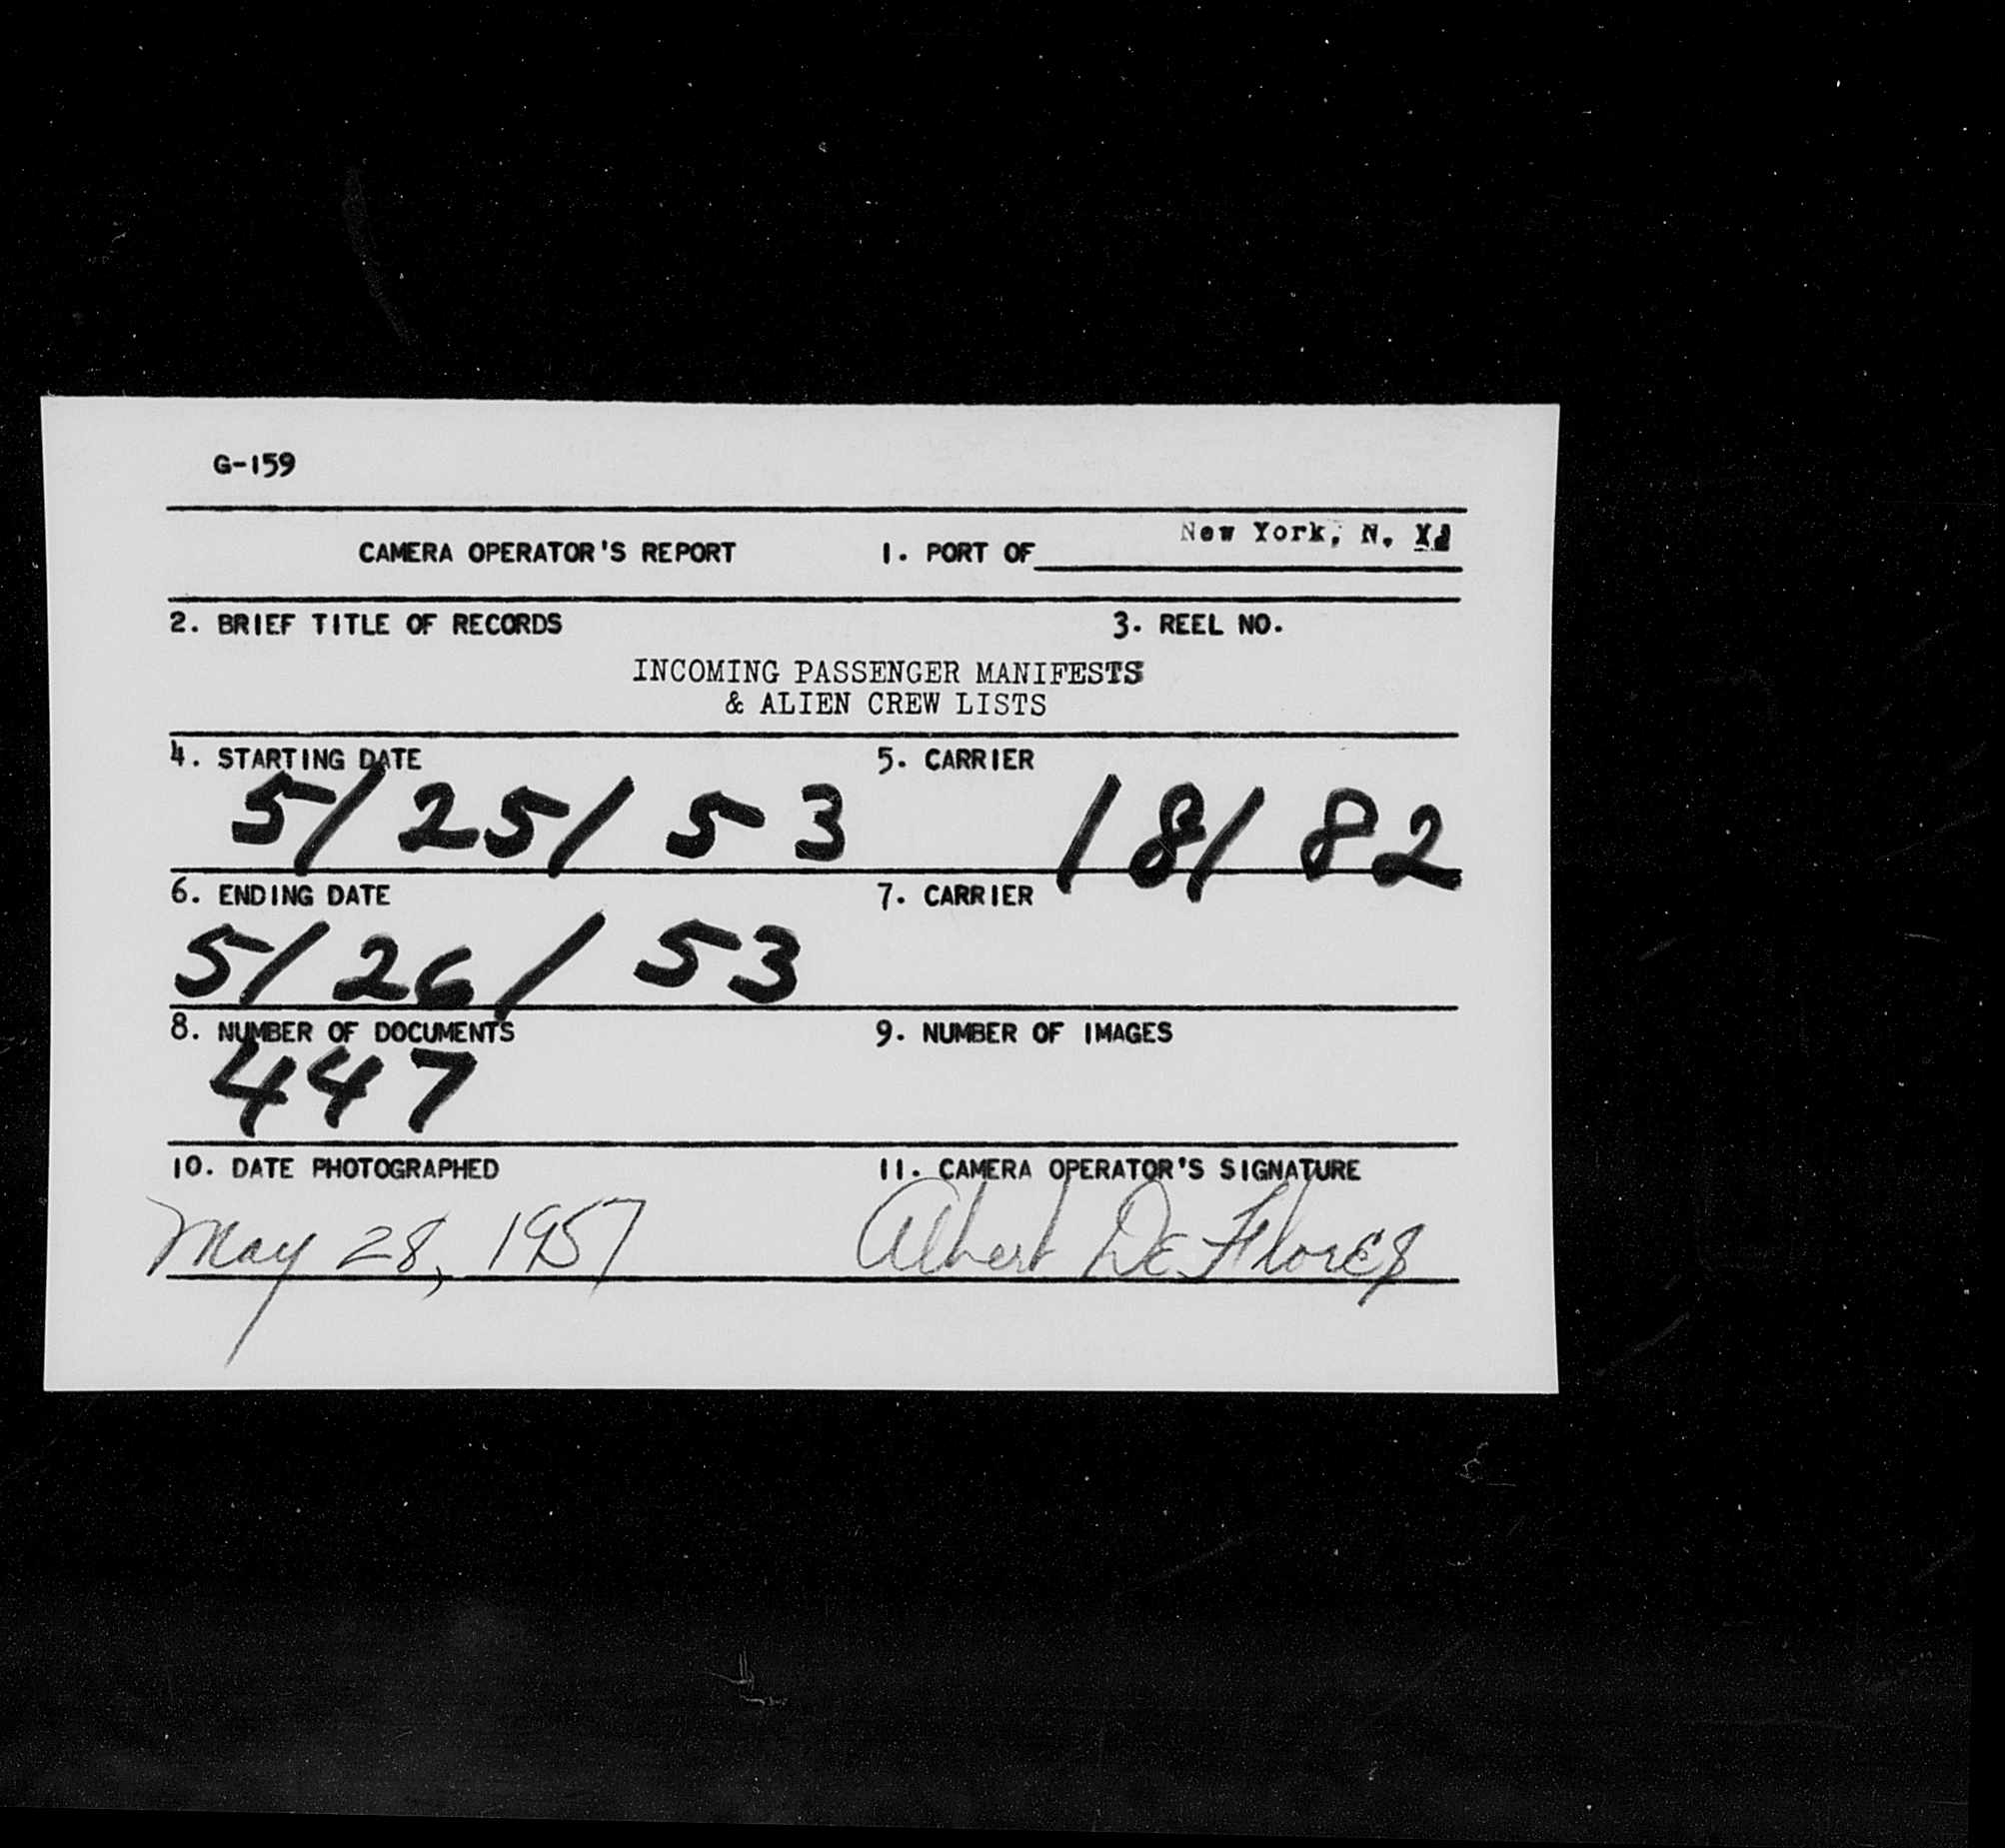 G-159
CAMERA OPERATOR'S REPORT 1. PORT OF New York, N. Y.
2. BRIEF TITLE OF RECORDS 3. REEL NO.
INCOMING PASSENGER MANIFESTS
& ALIEN CREW LISTS
4. STARTING DATE 5. CARRIER
5/25/53 18182
6. ENDING DATE 7. CARRIER
5/26/53
8. NUMBER OF DOCUMENTS 9. NUMBER OF IMAGES
447
10. DATE PHOTOGRAPHED 11. CAMERA OPERATOR'S SIGNATURE
May 28, 1957 Albert DeFlores